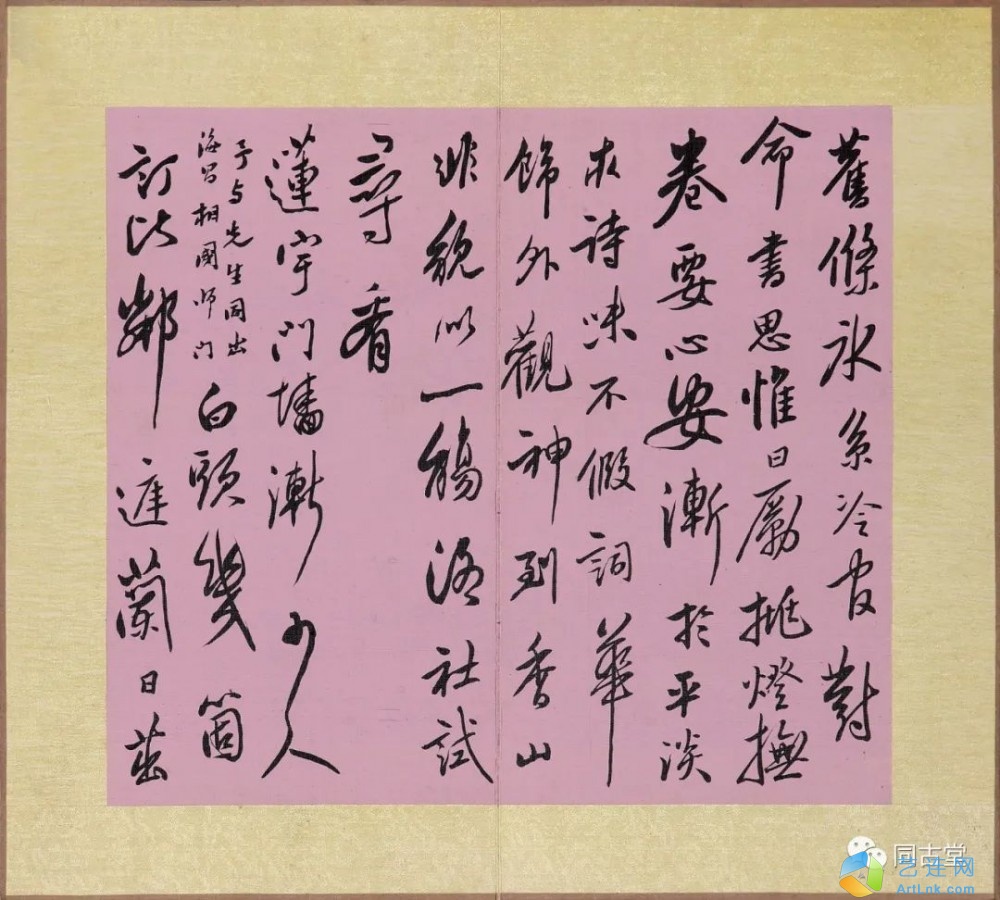 舊條冰系冷官對
命書思惟日勵挑燈撫
卷要心安漸於平淡
求詩味不假詞華
飾外觀神到香山
非貌似一觴洛社試
尋看
蓮宇門墻漸少人
予与先生同出
海昌相國師门
白頭幾箇
訂比鄰 遮蘭日茁
同古堂
艺连网
ArtLnk.com